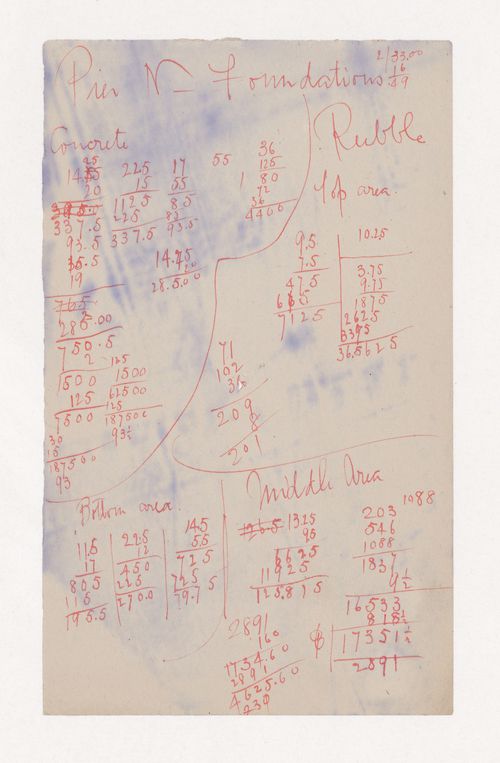 2/33.00
16
.49
Pier No Foundations
Concrete
Rubble
Top area.
25
14.55
20
337.5
93.5
15.5
19
285.00
750.5
2
1500
125
7500
30
15
187500
93
225
15
1125
225
337.5
17
55
85
85
93.5
55
36
125
1 80
72
36
4400
14.25
20
28.500
125
1500
62500
125
187500
93½
9.5
7.5
475
665
7125
10.25
3.75
9.75
1875
2625
3375
36.5625
71
102
36
209
8
201
Bottom area.
11.5
17
805
115
195.5
225
12
450
225
2700
14.5
55
725
725
79.75
Middle Area
13.25
95
6625
11925
125.875
203
546
1088
1837
9½
1088
16533
818½
$ 17351½
2891
2891
160
1734.60
2891
4625.60
230